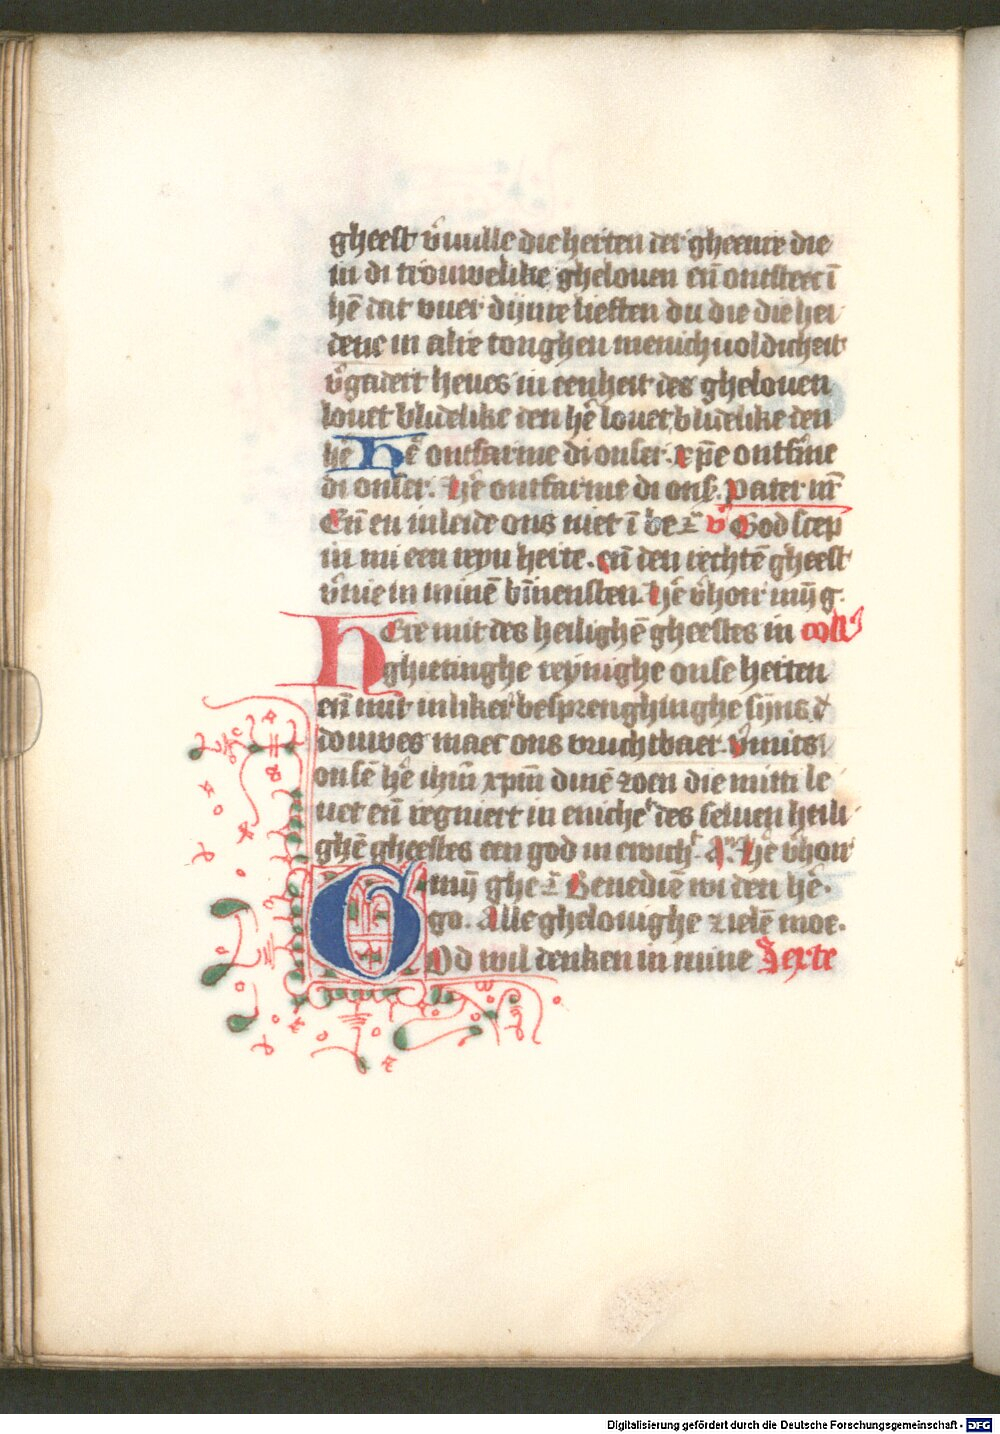 gheest v̄uulle die herten der gheenre die
in di trouwelike ghelouen en̄ ontsteec ī
hē dat vuer dijnre liefften du die die hei
dene in alre tonghen menichuoldicheit
v̄gadert heues in eenheit des ghelouen
louet blidelike den hē louet blidelike den
hē Hē ontfarme di onser. xp̄e ontf̄me
di onser. Hē ontfarme di ons. Pater nr̄
En̄ en inleide ons niet ī be v̄ God scep
in mi een reyn herte. en̄ den rechtē gheest
v̄nie in minē bīnensten. Hē v̄hoir mijn g.
HEre mit des heilighē gheestes in coll
ghietinghe reynighe onse herten
en̄ mit inliker besprenghinghe sijns
douwes maec ons vruchtbaer. v̄mits
onsē hē ihm̄ xpm̄ dinē zoen die mitti le
uet en̄ regniert in eniche des seluen heili
ghē gheestes een god in ewich. a. Hē v̄hoir
mijn ghe Benediē wi den hē.
go. Alle ghelouighe zielē moe.
GOd wil denken in mine Serte
Digitalisierung gefördert durch die Deutsche Forschungsgemeinschaft - DFG